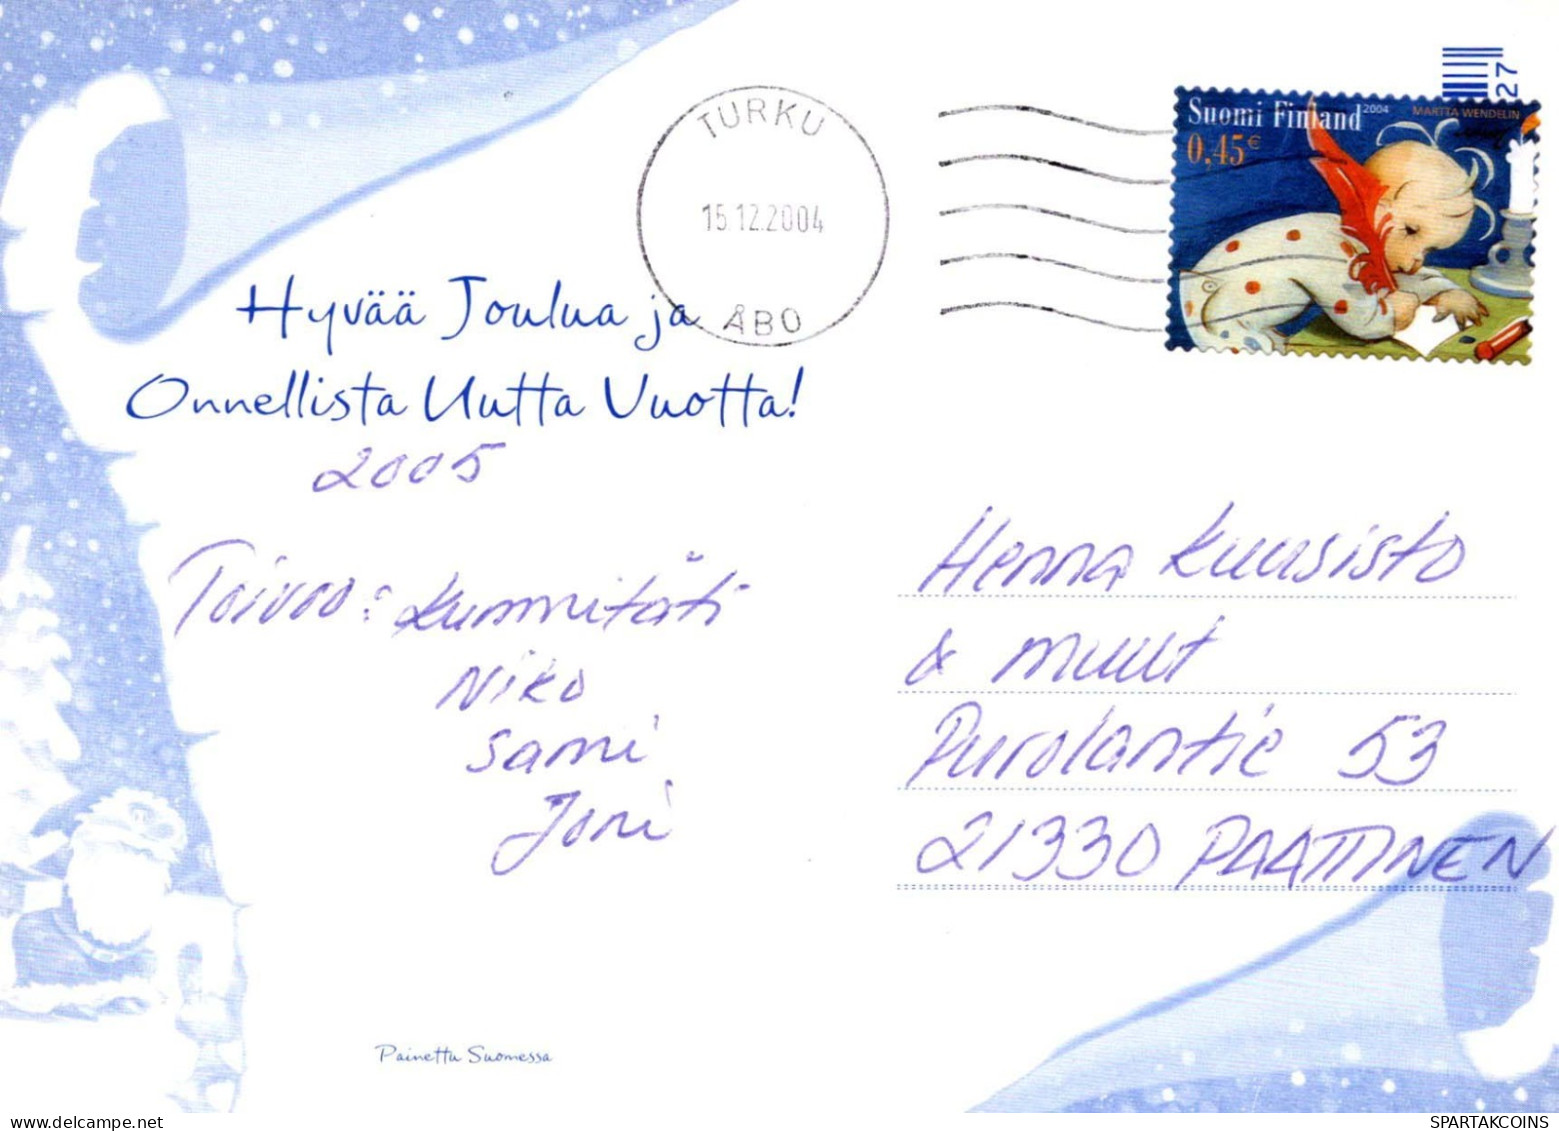 TURKU
15.12.2004
ÅBO
27
Suomi Finland 2004 MARTTA WENDELIN
0,45€
Hyvää Joulua ja
Onnellista Uutta Vuotta!
2005
Toivoo: Kummitäti
Niko
Sami
Joni
Henna Kuusisto
& muut
Purolantie 53
21330 PAATTINEN
Painettu Suomessa
SPARTAKCOINS